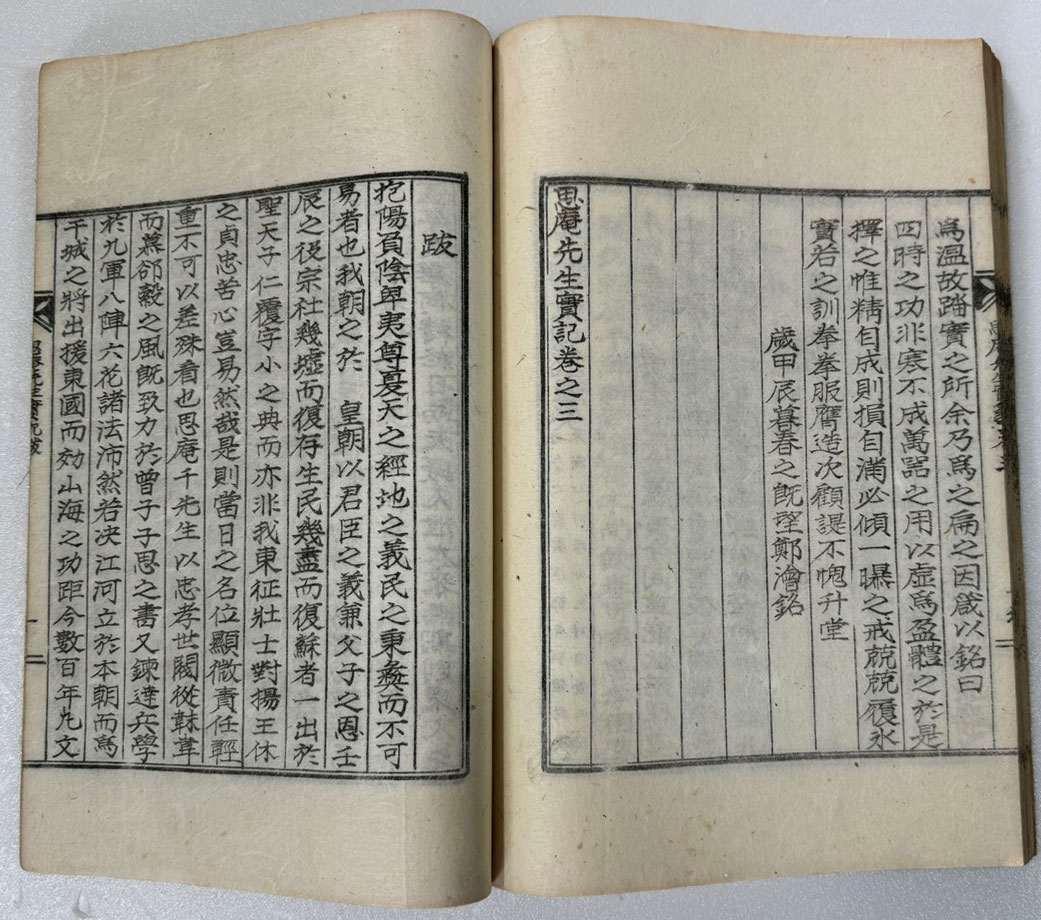 爲溫故踏實之所余乃爲之扁之因箴以銘曰
四時之功非寒不成萬器之用以虛爲盈體之於是
擇之惟精自成則損自滿必傾一曝之戒兢兢履氷
寶若之訓拳拳服膺造次顧諟不愧升堂
歲甲辰暮春之旣望鄭澮銘
思庵先生實記卷之三
跋
抱陽負陰卑夷尊夏天之經地之義民之秉彝而不可
易者也我朝之於 皇朝以君臣之義兼父子之恩壬
辰之役宗社幾墟而復存生民幾盡而復蘇者一出於
聖天子仁覆字小之典而亦非我東征壯士對揚王休
之貞忠苦心豈易然哉是則當日之名位顯微責任輕
重不可以差殊看也思庵千先生以忠孝世閥從韎韋
而慕郤縠之風旣致力於曾子子思之書又鍊達兵學
於九軍八陣六花諸法沛然若决江河立於本朝而爲
干城之將出援東國而効山海之功距今數百年凡文